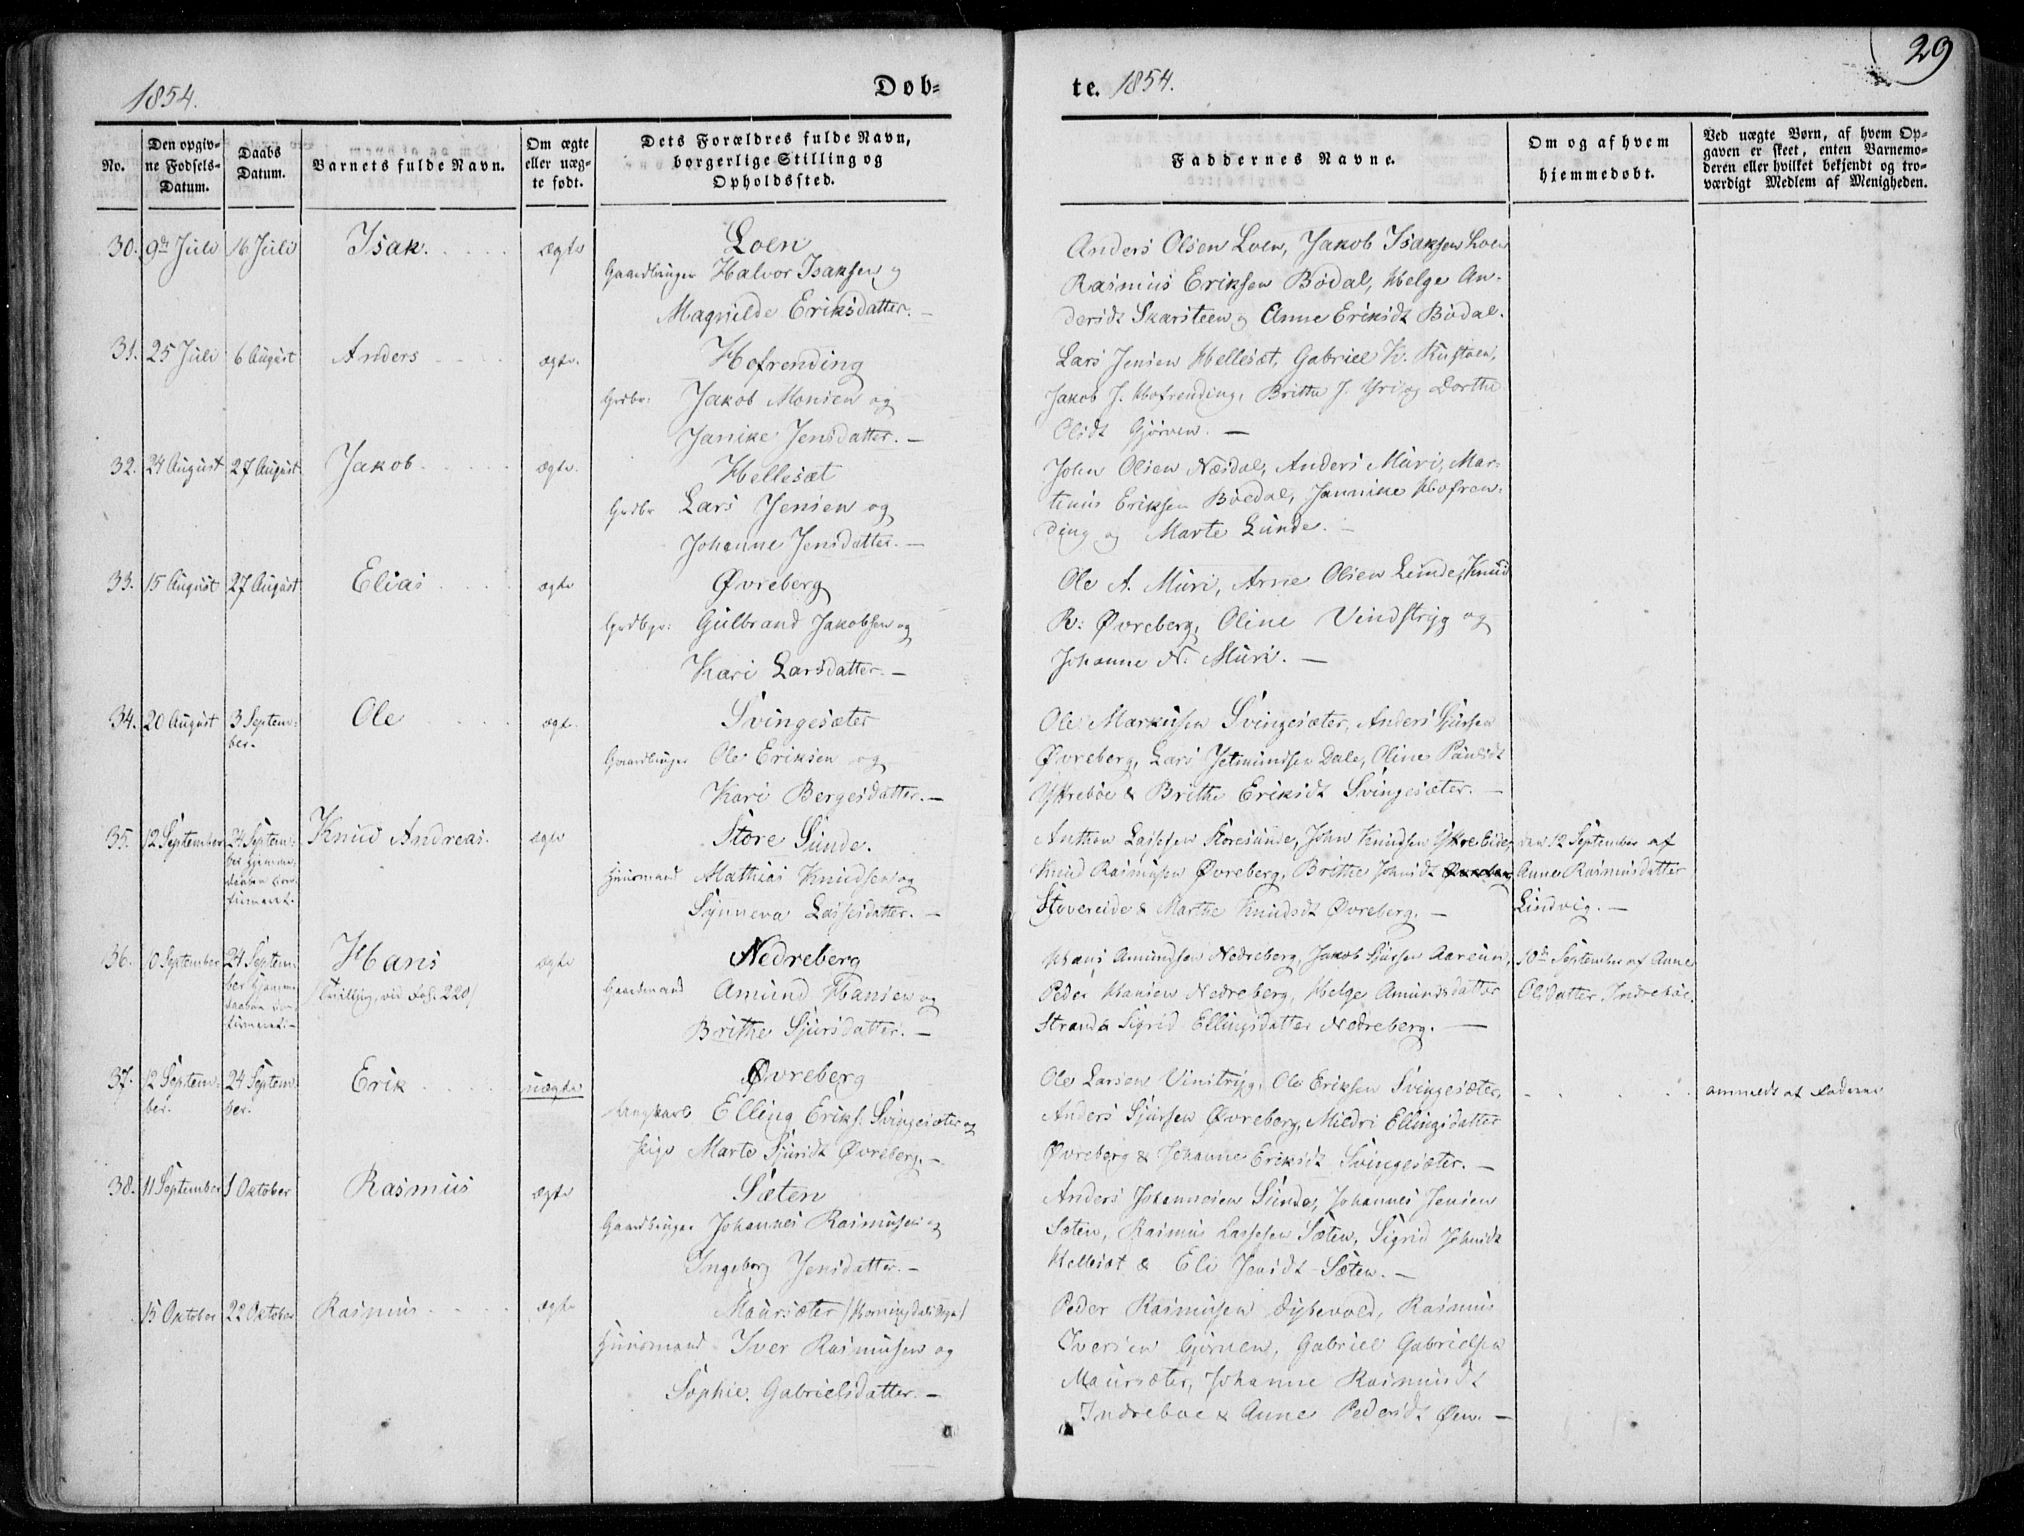 29
1854.
Døb-
te. 1854.
No.
Den opgiv-
ne Fødsels-
Datum.
Daabs
Datum.
Barnets fulde Navn.
Om ægte
eller uæg-
te født.
Dets Forældres fulde Navn,
borgerlige Stilling og
Opholdssted.
Faddernes Navne.
Om og af hvem
hjemmedøbt.
Ved uægte Børn, af hvem Op-
gaven er skeet, enten Barnemo-
deren eller hvilket bekjendt og tro-
værdigt Medlem af Menigheden.
30. 9de Juli 16 Juli Isak. ægte Loen
Gaardbruger Halvor Isaksen og
Magnilde Eriksdatter. —
Anders Olsen Loen, Jakob Isaksen Loen
Rasmus Eriksen Bødal, Helge An-
dersdt Skarsteen og Anne Eriksdt Bødal.
31. 25 Juli 6 August Anders ægte. Hofrending
Grdbr: Jakob Monsen og
Janike Jensdatter. —
Lars Jensen Hellesæt, Gabriel K.
Jakob J. Hofrending, Brithe J. Yri og Dorthe
Olsdt Gjørven. —
32. 24 August 27 August Jakob. ægte. Hellesæt
Grdbr Lars Jensen og
Johanne Jensdatter. —
John Olsen Næsdal, Anders Muri, Mar-
tinus Eriksen Bødal, Jannike Hofren-
ding og Marte Lunde. —
33. 15 August 27 August Elias ægte Øvreberg
Grdbgr: Gulbrand Jakobsen og
Kari Larsdatter. —
Ole A. Muri, Arne Olsen Lunde, Knud
R: Øvreberg, Oline Vindstryg og
Johanne N. Muri. —
34. 20 August 3 Septem-
ber. Ole ægte. Svingesæter
Gaardbruger Ole Eriksen og
Kari Bergesdatter. —
Ole Markusen Svingesæter, Anders Sjursen
Øvreberg, Lars Jetmundsen Dale, Oline Paulsdt
Yttrebøe & Brithe Eriksdt Svingesæter. —
35. 12 September 24 Septem-
ber hjemme-
daaben con-
firmeret. Knud Andreas. ægte Store Sunde.
Huusmand Mathias Knudsen og
Synneva Lassesdatter. —
Anthon Lassesen Storesunde, John Knudsen Yttreeide,
Knud Rasmusen Øvreberg, Brithe Johnsdt
Stovereide & Marthe Knudsdt Øvreberg. —
den 12 September af
Anne Rasmusdatter
Lindvig. —
36. 10 September 24 Septem-
ber hjemme-
daaben con-
firmeret. — Hans
/Tvilling, vid Fol: 220/ ægte Nedreberg
Gaardmand Amund Hansen og
Brithe Sjursdatter. —
Hans Amundsen Nedreberg, Jakob Sjursen Aarene,
Peder Hansen Nedreberg, Helge Amundsdatter
Strand & Sigrid Ellingsdatter Nedreberg. —
10de September af Anne
Olsdatter Indrebøe.
37. 12 Septem-
ber. 24 Septem-
ber. Erik uægte Øvreberg
Ungkarl Elling Eriks. Svingesæter og
Pige Marte Sjursdt Øvreberg. —
Ole Larsen Vinstryg, Ole Eriksen Svingesæter,
Anders Sjursen Øvreberg, Mildri Ellingsdatter
Øvreberg & Johanne Eriksdt Svingesæter. —
anmeldt af Faderen
38. 11 September 1 Oktober Rasmus ægte Sæten
Gaardbruger Johannes Rasmusen og
Ingeborg Jensdatter. —
Anders Johannesen Sunde, Johannes Jensen
Sæten, Rasmus Lassesen Sæten, Sigrid Johnsdt
Hellesæt & Eli Jensdt Sæten. —
15 Oktober 22 Oktober Rasmus ægte Maursæter /Horningdals Sogn/
Huusmand Iver Rasmusen og
Sophie Gabrielsdatter. —
Peder Rasmusen Dybevold, Rasmus
Iversen Gjørven, Gabriel Gabrielsen
Maursæter, Johanne Rasmusdt
Indrebøe & Anne Pedersdt Øen. —